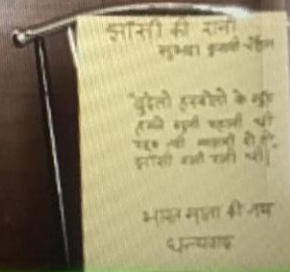 झाँसी की रानी
सुभद्रा कुमारी चौहान
"बुंदेलो हरबोलो के मुँह
हमने सुनी कहानी थी
खूब लड़ी मर्दानी वो तो
झाँसी वाली रानी थी।
भारत माता की जय
धन्यवाद